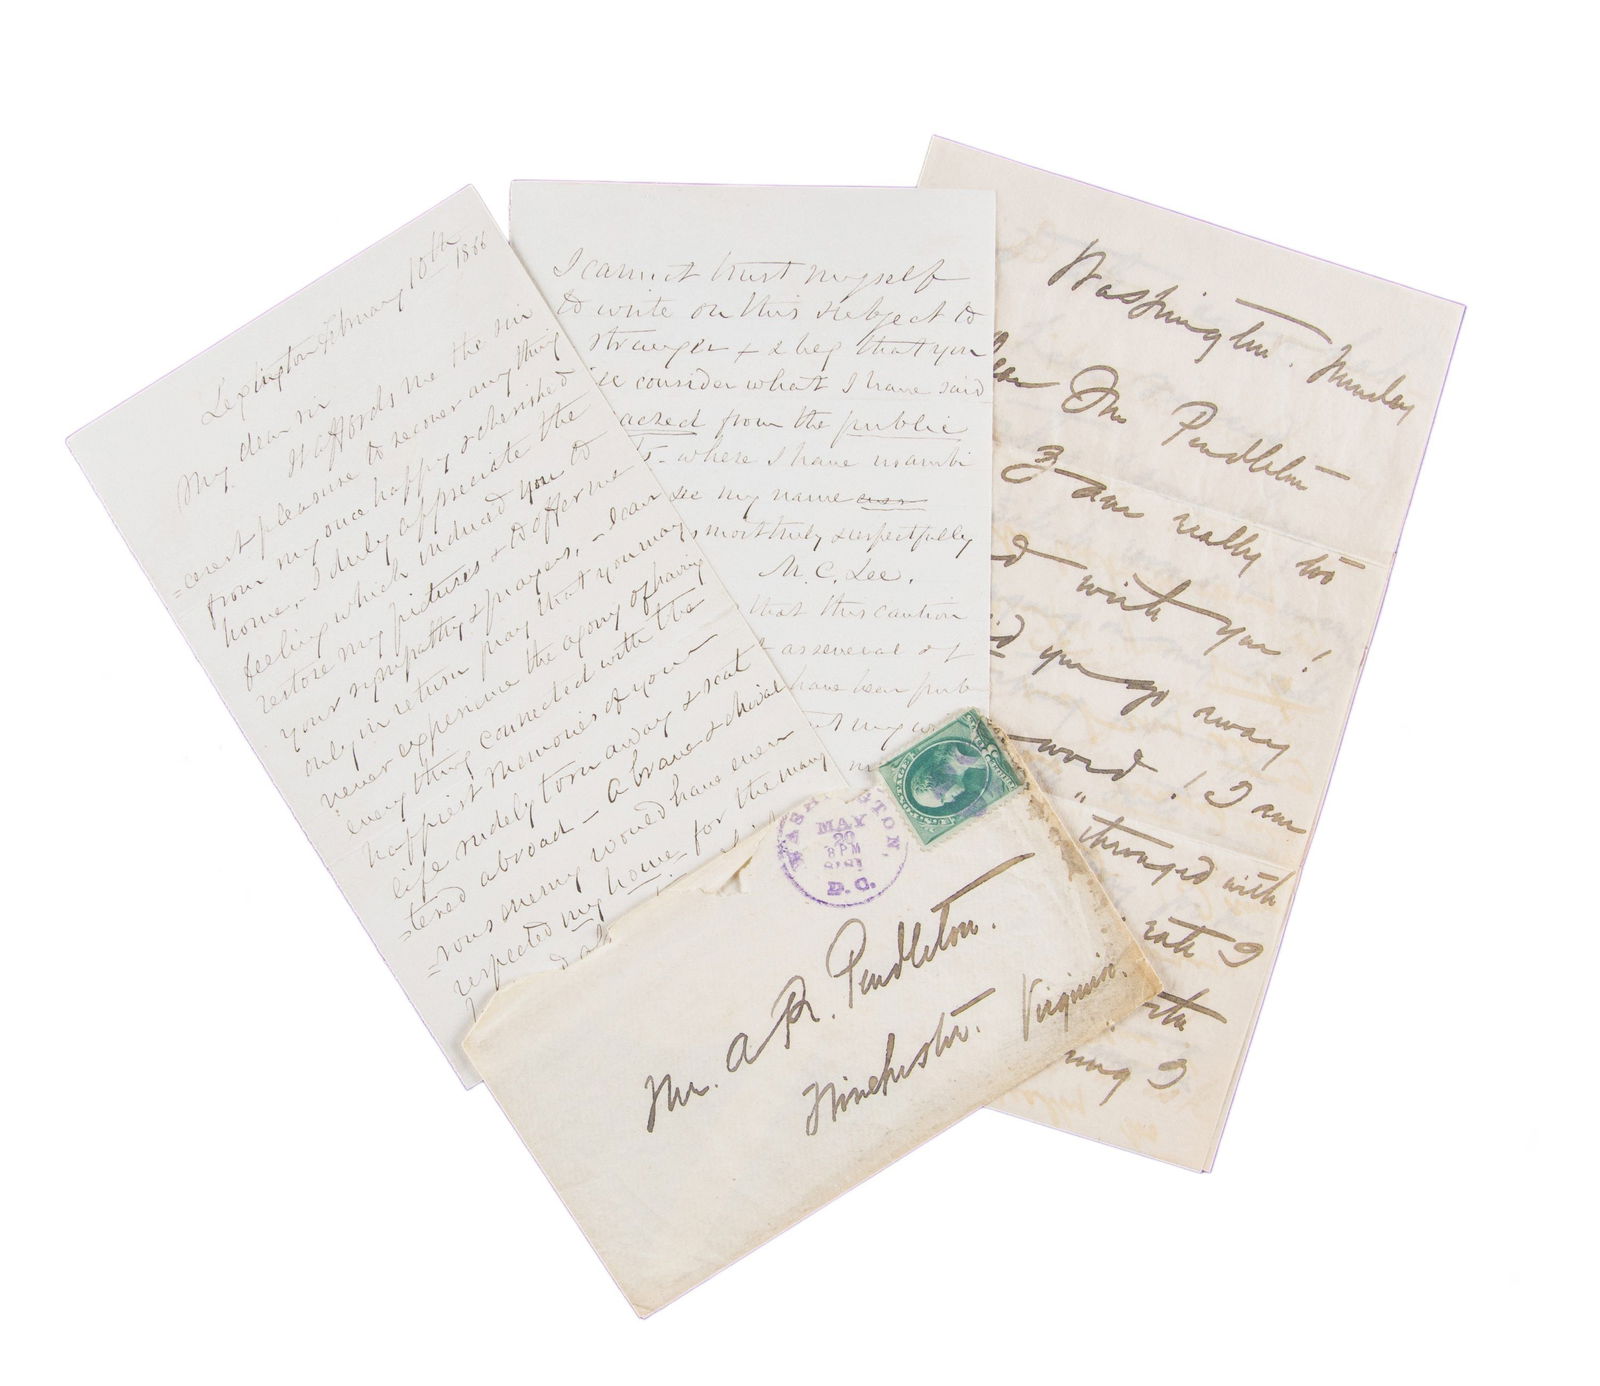 Lexington February 10th 1866
My dear sir
It affords me the sin
=cerest pleasure to recover any thing
from my once happy & cherished
home, - I duly appreciate the
feeling which induced you to
restore my pictures & to offer me
your sympathy & prayers, - I can
only in return pray that you may
never experience the agony of having
every thing connected with the
happiest memories of your
life rudely torn away & scat
=tered abroad - A brave & chival
=rous enemy would have even
respected my home for the many
I cannot trust myself
to write on this subject to
stranger & I beg that you
consider what I have said
sacred from the public
where I have no ambi
see my name
most truly & respectfully
M. C. Lee.
that this caution
as several of
have been pub
my
Washington. Sunday
Dear Mr Pendleton
I am really too
with you!
you go away
word! I am
" thronged with
rate I
I
WASHINGTON,
MAY
20
8 PM
D.C.
POSTAGE
Mr. A R. Pendleton.
Winchester. Virginia.